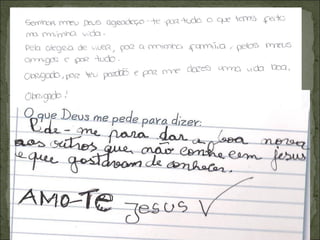 Senhor meu Deus agradeço-te por tudo o que tens feito
na minha vida.
Pela alegria de viver, por a minha família, pelos meus
amigos e por tudo.
Obrigado, por teu perdão e por me dares uma vida boa.
Obrigado!
O que Deus me pede para dizer:
Pede-me para dar a boa nova
aos outros que não conhecem jesus
e que gostavam de conhecer.
AMO-TE Jesus